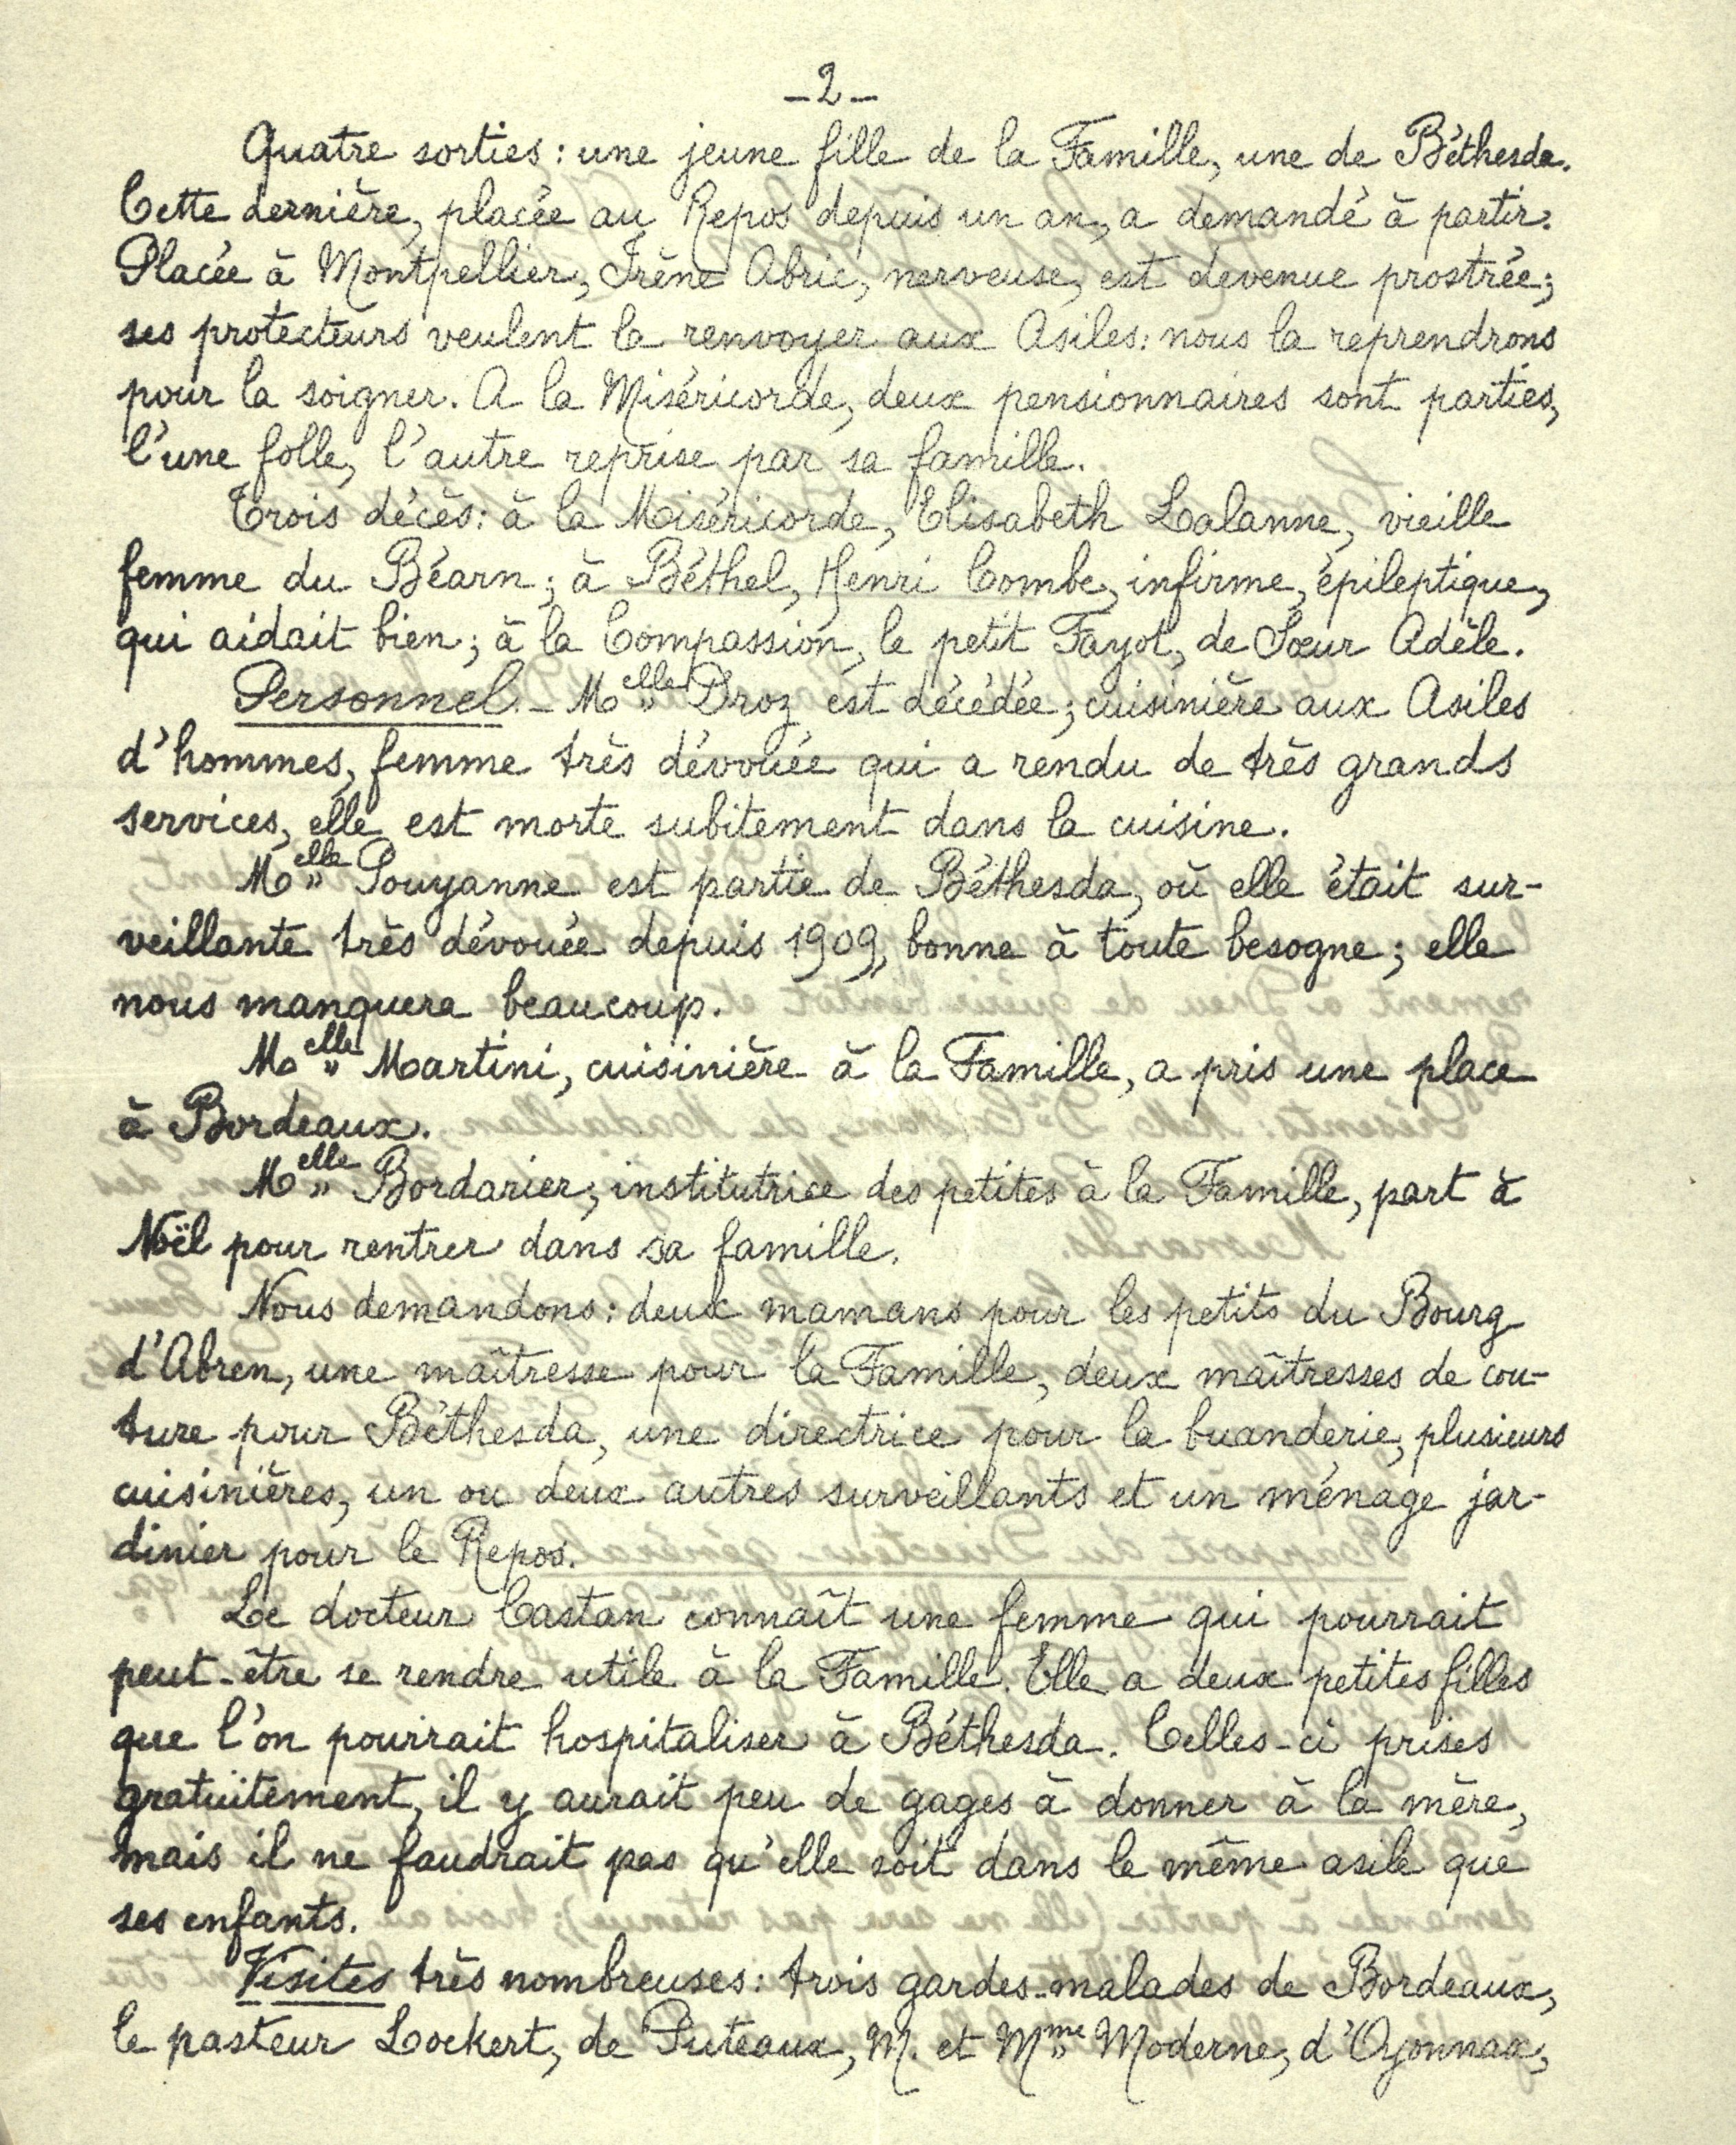 _2_
Quatre sorties: une jeune fille de la Famille, une de Béthesda.
Cette dernière, placée au Repos depuis un an, a demandé à partir.
Placée à Montpellier, Irène Abric, nerveuse, est devenue prostrée;
ses protecteurs veulent la renvoyer aux Asiles: nous la reprendrons
pour la soigner. A la Miséricorde, deux pensionnaires sont parties,
l'une folle, l'autre reprise par sa famille.
Trois décès: à la Miséricorde, Elisabeth Lalanne, vieille
femme du Béarn; à Béthel, Henri Combe, infirme, épileptique,
qui aidait bien; à la Compassion, le petit Fayol, de Sœur Adèle.
Personnel._ Melle Droz est décédée; cuisinière aux Asiles
d'hommes, femme très dévouée qui a rendu de très grands
services, elle est morte subitement dans la cuisine.
Melle Souyanne est partie de Béthesda, où elle était sur-
veillante très dévouée depuis 1909, bonne à toute besogne; elle
nous manquera beaucoup.
Melle Martini, cuisinière à la Famille, a pris une place
à Bordeaux.
Melle Bordarier, institutrice des petites à la Famille, part à
Noël pour rentrer dans sa famille.
Nous demandons: deux mamans pour les petits du Bourg
d'Abren, une maîtresse pour la Famille, deux maîtresses de cou-
ture pour Béthesda, une directrice pour la buanderie, plusieurs
cuisinières, un ou deux autres surveillants et un ménage jar-
dinier pour le Repos.
Le docteur Castan connaît une femme qui pourrait
peut-être se rendre utile à la Famille. Elle a deux petites filles
que l'on pourrait hospitaliser à Béthesda. Celles-ci prises
gratuitement, il y aurait peu de gages à donner à la mère,
mais il ne faudrait pas qu'elle soit dans le même asile que
ses enfants.
Visites très nombreuses: trois gardes-malades de Bordeaux,
le pasteur Lockert, de Puteaux, M. et Mme Moderne, d'Oyonnax,